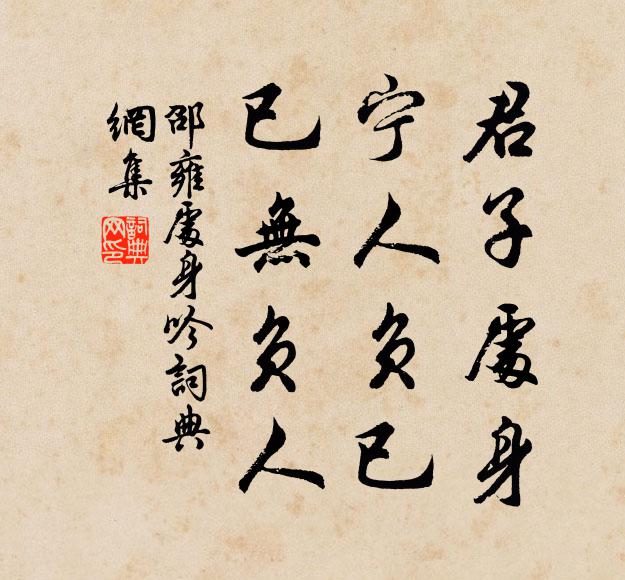 君子處身
宁人負已
已無負人
邵雍處身吟詞典
網集
詞典
网印